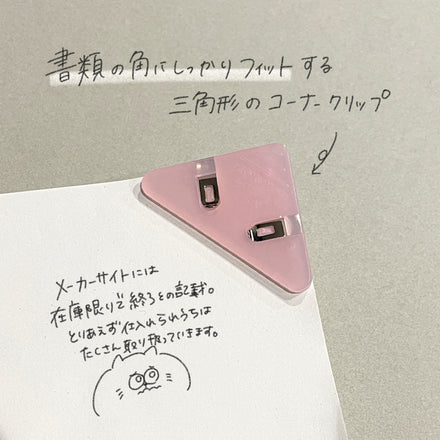 書類の角にしっかりフィットする
三角形のコーナークリップ
メーカーサイトには
在庫限りで終了との記載。
とりあえず仕入れられるうちは
たくさん取り扱っていきます。